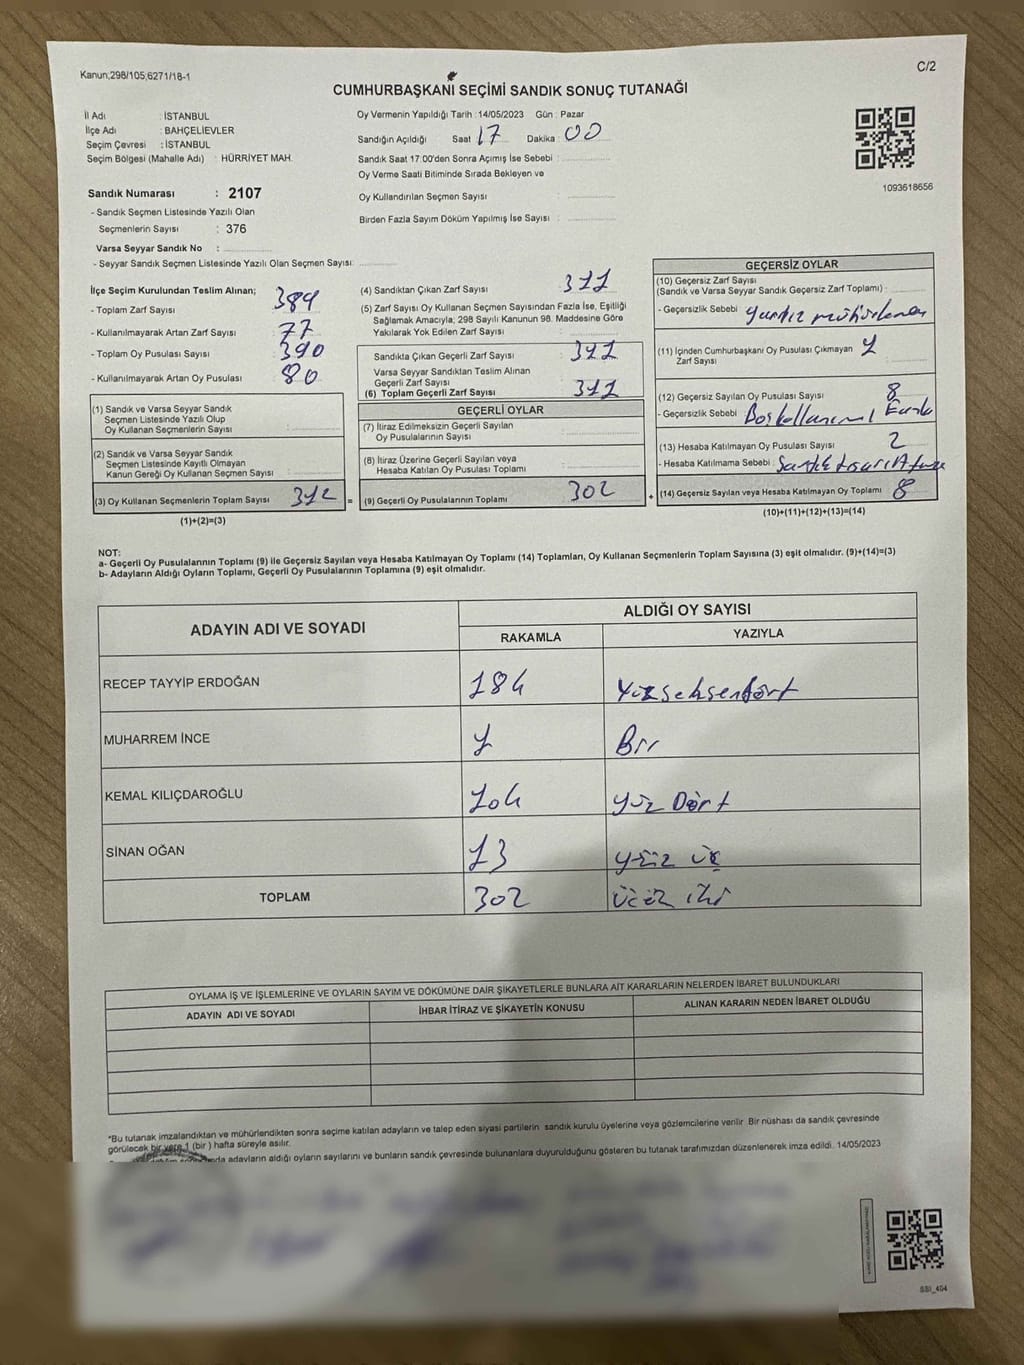 Kanun,298/105,6271/18-1
C/2
CUMHURBAŞKANI SEÇİMİ SANDIK SONUÇ TUTANAĞI
İl Adı : İSTANBUL
İlçe Adı : BAHÇELİEVLER
Seçim Çevresi : İSTANBUL
Seçim Bölgesi (Mahalle Adı) : HÜRRİYET MAH.
Sandık Numarası : 2107
- Sandık Seçmen Listesinde Yazılı Olan
Seçmenlerin Sayısı : 376
Varsa Seyyar Sandık No :
- Seyyar Sandık Seçmen Listesinde Yazılı Olan Seçmen Sayısı:
Oy Vermenin Yapıldığı Tarih : 14/05/2023 Gün : Pazar
Sandığın Açıldığı Saat 17 Dakika : 00
Sandık Saat 17:00'den Sonra Açımış İse Sebebi :
Oy Verme Saati Bitiminde Sırada Bekleyen ve
Oy Kullandırılan Seçmen Sayısı :
Birden Fazla Sayım Döküm Yapılmış İse Sayısı :
1093618656
İlçe Seçim Kurulundan Teslim Alınan;
- Toplam Zarf Sayısı : 389
- Kullanılmayarak Artan Zarf Sayısı : 77
- Toplam Oy Pusulası Sayısı : 390
- Kullanılmayarak Artan Oy Pusulası : 80
(1) Sandık ve Varsa Seyyar Sandık
Seçmen Listesinde Yazılı Olup
Oy Kullanan Seçmenlerin Sayısı :
(2) Sandık ve Varsa Seyyar Sandık
Seçmen Listesinde Kayıtlı Olmayan
Kanun Gereği Oy Kullanan Seçmen Sayısı :
(3) Oy Kullanan Seçmenlerin Toplam Sayısı : 312 =
(1)+(2)=(3)
(4) Sandıktan Çıkan Zarf Sayısı : 311
(5) Zarf Sayısı Oy Kullanan Seçmen Sayısından Fazla İse, Eşitliği
Sağlamak Amacıyla, 298 Sayılı Kanunun 98. Maddesine Göre
Yakılarak Yok Edilen Zarf Sayısı :
Sandıkta Çıkan Geçerli Zarf Sayısı : 311
Varsa Seyyar Sandıktan Teslim Alınan
Geçerli Zarf Sayısı :
(6) Toplam Geçerli Zarf Sayısı : 311
GEÇERLİ OYLAR
(7) İtiraz Edilmeksizin Geçerli Sayılan
Oy Pusulalarının Sayısı :
(8) İtiraz Üzerine Geçerli Sayılan veya
Hesaba Katılan Oy Pusulası Toplamı :
(9) Geçerli Oy Pusulalarının Toplamı : 302 +
GEÇERSİZ OYLAR
(10) Geçersiz Zarf Sayısı
(Sandık ve Varsa Seyyar Sandık Geçersiz Zarf Toplamı) :
- Geçersizlik Sebebi :
(11) İçinden Cumhurbaşkanı Oy Pusulası Çıkmayan 1
Zarf Sayısı :
(12) Geçersiz Sayılan Oy Pusulası Sayısı : 8
- Geçersizlik Sebebi :
(13) Hesaba Katılmayan Oy Pusulası Sayısı : 2
- Hesaba Katılmama Sebebi :
(14) Geçersiz Sayılan veya Hesaba Katılmayan Oy Toplamı : 8
(10)+(11)+(12)+(13)=(14)
NOT:
a- Geçerli Oy Pusulalarının Toplamı (9) ile Geçersiz Sayılan veya Hesaba Katılmayan Oy Toplamı (14) Toplamları, Oy Kullanan Seçmenlerin Toplam Sayısına (3) eşit olmalıdır. (9)+(14)=(3)
b- Adayların Aldığı Oyların Toplamı, Geçerli Oy Pusulalarının Toplamına (9) eşit olmalıdır.
ADAYIN ADI VE SOYADI
ALDIĞI OY SAYISI
RAKAMLA YAZIYLA
RECEP TAYYİP ERDOĞAN 184 Yüzseksendört
MUHARREM İNCE 1 Bir
KEMAL KILIÇDAROĞLU 104 Yüz Dört
SİNAN OĞAN 13 yüz üç
TOPLAM 302 Üçüz iki
OYLAMA İŞ VE İŞLEMLERİNE VE OYLARIN SAYIM VE DÖKÜMÜNE DAİR ŞİKAYETLERLE BUNLARA AİT KARARLARIN NELERDEN İBARET BULUNDUKLARI
ADAYIN ADI VE SOYADI İHBAR İTİRAZ VE ŞİKAYETİN KONUSU ALINAN KARARIN NEDEN İBARET OLDUĞU
*Bu tutanak imzalandıktan ve mühürlendikten sonra seçime katılan adayların ve talep eden siyasi partilerin sandık kurulu üyelerine veya gözlemcilerine verilir. Bir nüshası da sandık çevresinde
görülecek bir yere 1 (bir) hafta süreyle asılır.
adayların aldığı oyların sayılarını ve bunların sandık çevresinde bulunanlara duyurulduğunu gösteren bu tutanak tarafımızdan düzenlenerek imza edildi. 14/05/2023
SSI_404